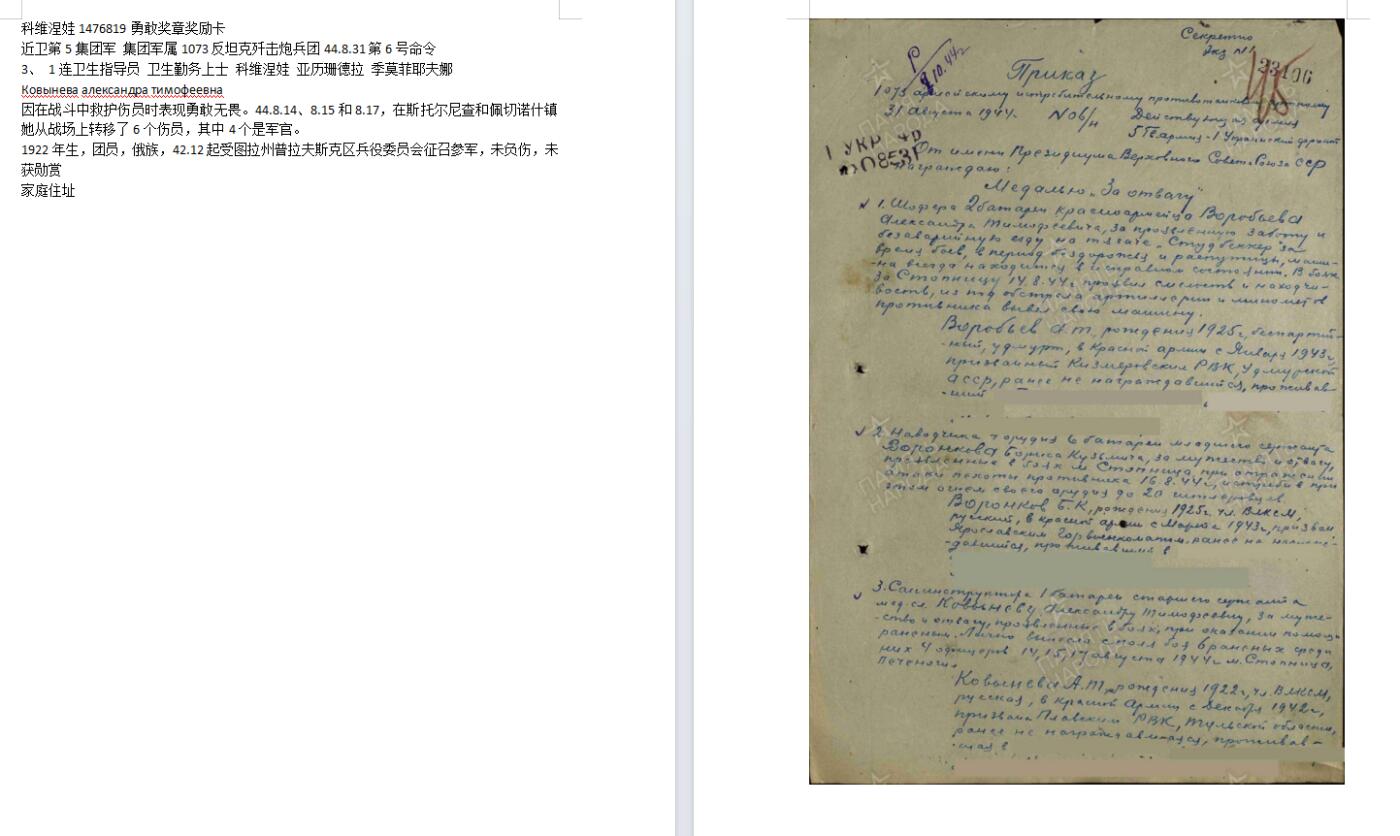 科维涅娃 1476819 勇敢奖章奖励卡
近卫第 5 集团军 集团军属 1073 反坦克歼击炮兵团 44.8.31 第 6 号命令
3、 1 连卫生指导员 卫生勤务上士 科维涅娃 亚历珊德拉 季莫菲耶夫娜
Ковынева александра тимофеевна
因在战斗中救护伤员时表现勇敢无畏。44.8.14、8.15 和 8.17，在斯托尔尼查和佩切诺什镇
她从战场上转移了 6 个伤员，其中 4 个是军官。
1922 年生，团员，俄族，42.12 起受图拉州普拉夫斯克区兵役委员会征召参军，未负伤，未
获勋赏
家庭住址
Секретно
Экз №1
23406
Р
9.10.44г
Приказ
1073 армейскому истребительному противотанковому арт. полку
31 августа 1944г. №06/н Действующая армия
5 Гв армия - 1 Украинский фронт
1 УКР ФР
От имени Президиума Верховного Совета Союза ССР
награждаю:
Медалью "За отвагу"
1. Шофера 2 батареи красноармейца Воробьева
Александра Тимофеевича, за проявленную заботу и
безаварийную езду на тягаче "Студебеккер" за
время боев, в период бездорожья и распутицы, маши-
на всегда находится в исправном состоянии. В боях
за Стопницу 14.8.44г. проявил смелость и находчи-
вость, из под обстрела артиллерии и минометов
противника вывел свою машину.
Воробьев А.Т. рождения 1925г, беспартий-
ный, удмурт, в Красной армии с Января 1943г,
призванный Кизнеровским РВК, Удмуртской
АССР, ранее не награждавшийся, проживав-
ший
2. Наводчика орудия 6 батареи младшего сержанта
Воронкова Бориса Кузьмича, за мужество и отвагу,
проявленные в боях м Стопница, при отражении
атаки пехоты противника 16.8.44г, истребив при
этом огнем своего орудия до 20 гитлеровцев.
Воронков Б.К, рождения 1925г. чл. ВЛКСМ,
русский, в красной армии с Марта 1943г, призван
Ярославским Горвоенкоматом. ранее не награж-
давшийся, проживавший в
3. Санинструктора 1 батареи старшего сержанта
мед.сл. Ковыневу Александру Тимофеевну, за муже-
ство и отвагу, проявленные в боях, при оказании помощи
раненым. Лично вынесла с поля боя 6 раненых среди
них 4 офицеров 14, 15, 17 августа 1944г м. Стопница,
Печеноги.
Ковынева А.Т, рождения 1922г, чл. ВЛКСМ,
русская, в красной Армии с Декабря 1942г,
призвана Плавским РВК, Тульской области,
ранее не награждавшаяся, проживав-
шая в